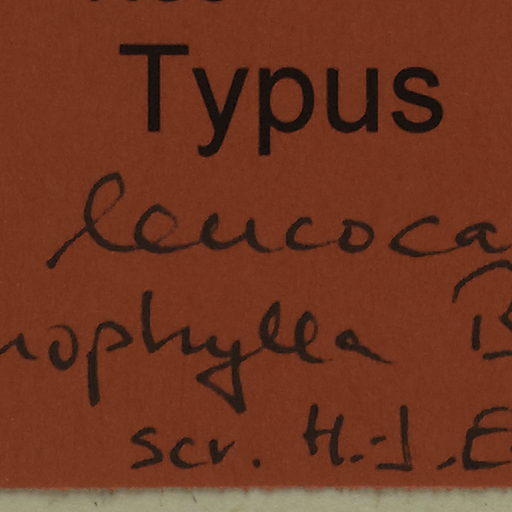 Typus
leucoca
nophylla B
scr. H.-J. E